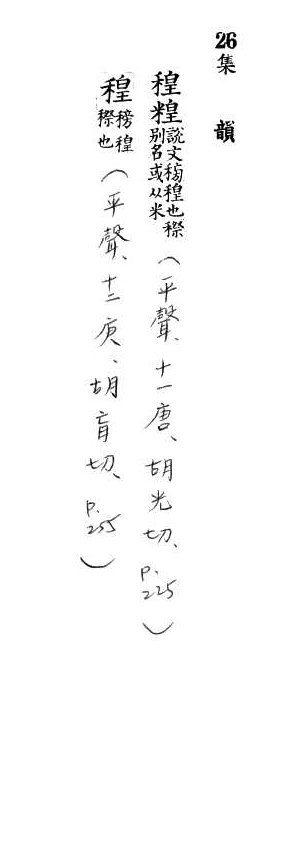 26 集韻
稑糧說文䅭稑也穄别名或从米（平聲、十一唐、胡光切、p.225）
稑䅭稑穄也（平聲、十二庚、胡盲切、p.235）